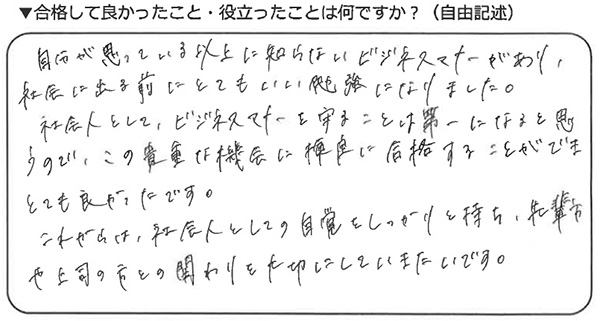 ▼合格して良かったこと・役立ったことは何ですか？（自由記述）
自分が思っている以上に知らないビジネスマナーがあり、
社会に出る前にとてもいい勉強になりました。
社会人として、ビジネスマナーを守ることは第一になると思
うので、この貴重な機会に検定に合格することができ
とても良かったです。
これからは、社会人としての自覚をしっかりと持ち、先輩方
や上司の方との関わりを大切にしていきたいです。